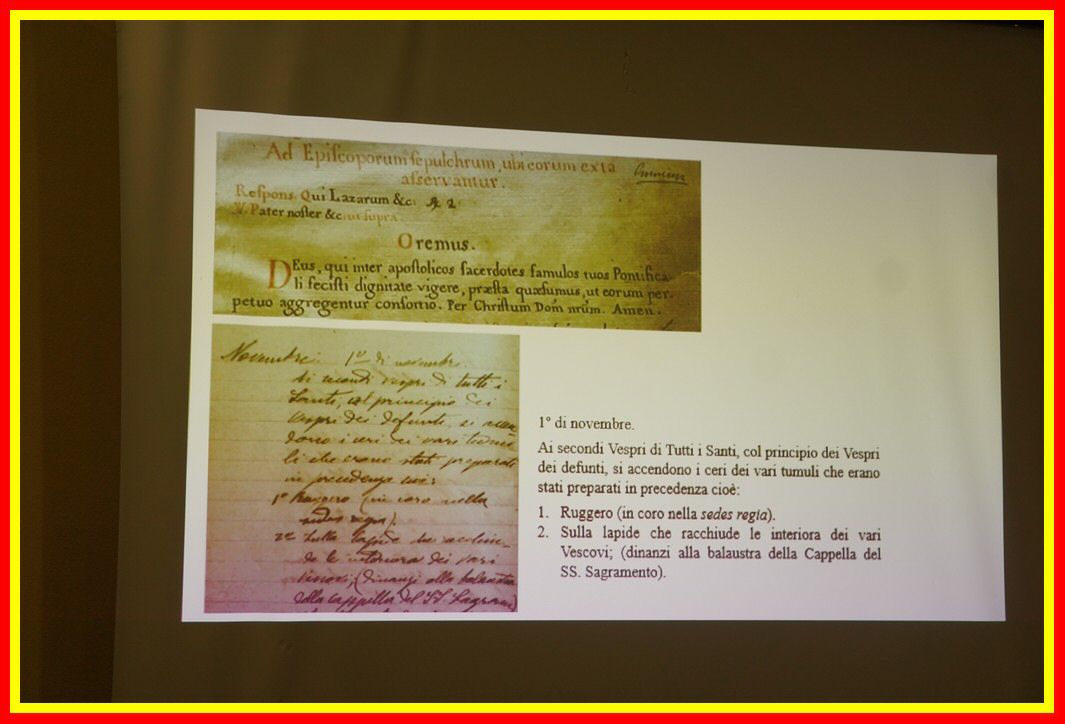 Ad Epiſcoporum ſepulchrum, ubi eorum exta
aſservantur.
Reſpons. Qui Lazarum &c. ℟ 2
V. Pater noſter &c. ut ſupra.
Oremus.
DEus, qui inter apoſtolicos ſacerdotes famulos tuos Pontifica-
li feciſti dignitate vigere, præſta quæſumus, ut eorum per-
petuo aggregentur conſortio. Per Chriſtum Dom̄ nrūm. Amen.
Novembre: 1º di novembre.
Ai secondi vespri di tutti i
Santi, col principio dei
vespri dei defunti, si accen
dono i ceri dei vari tumu
li che erano stati preparati
in precedenza cioè:
1º Ruggero (in coro nella
sedes regia).
2º Sulla lapide che racchiu-
de le interiora dei vari
Vescovi; (dinanzi alla balaustra
della Cappella del SS. Sagram)
1° di novembre.
Ai secondi Vespri di Tutti i Santi, col principio dei Vespri
dei defunti, si accendono i ceri dei vari tumuli che erano
stati preparati in precedenza cioè:
1. Ruggero (in coro nella sedes regia).
2. Sulla lapide che racchiude le interiora dei vari
Vescovi; (dinanzi alla balaustra della Cappella del
SS. Sagramento).